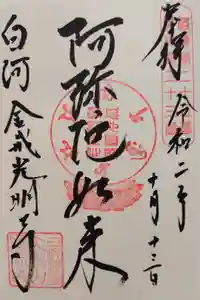 奉拝
令和二年
十月十三日
阿弥陀如来
白河
金戒光明寺